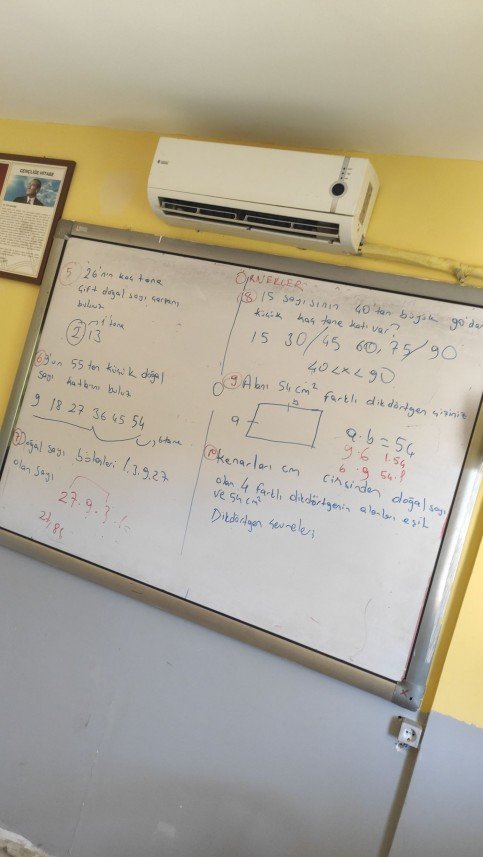 GENÇLİĞE HİTABE
5 26'nın kaç tane
çift doğal sayı çarpanı
bulunuz
2 13 1 tane
6 9'un 55 ten küçük doğal
sayı katlarını bulunuz
9 18 27 36 45 54
6 tane
7 Doğal sayı bölenleri 1.3.9.27
olan sayı
27.9.3.1
ÖRNEKLER
8 15 sayısının 40'tan büyük 90'dan
küçük kaç tane katı var?
15 30/45 60, 75/90
40<x<90
9 Alanı 54 cm² farklı dikdörtgen çiziniz
b
a
a.b=54
9.6 1.54
6.9 54.1
Kenarları cm cinsinden doğal sayı
olan 4 farklı dikdörtgenin alanları eşit
ve 54 cm²
Dikdörtgen çevreleri